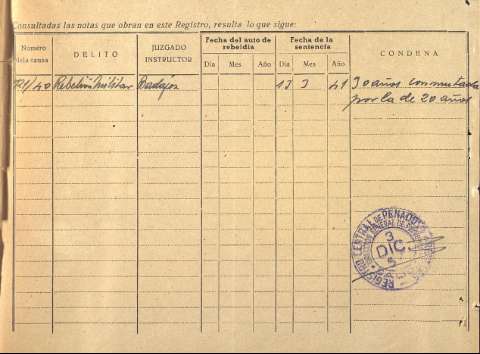 Consultadas las notas que obran en este Registro, resulta lo que sigue:
Número de la causa
DELITO
JUZGADO INSTRUCTOR
Fecha del auto de rebeldía
Día Mes Año
Fecha de la sentencia
Día Mes Año
CONDENA
/40 Rebelión Militar Badajoz 13 3 41 30 años conmutada
por la de 20 años
REGISTRO CENTRAL DE PENADOS
3
DIC.